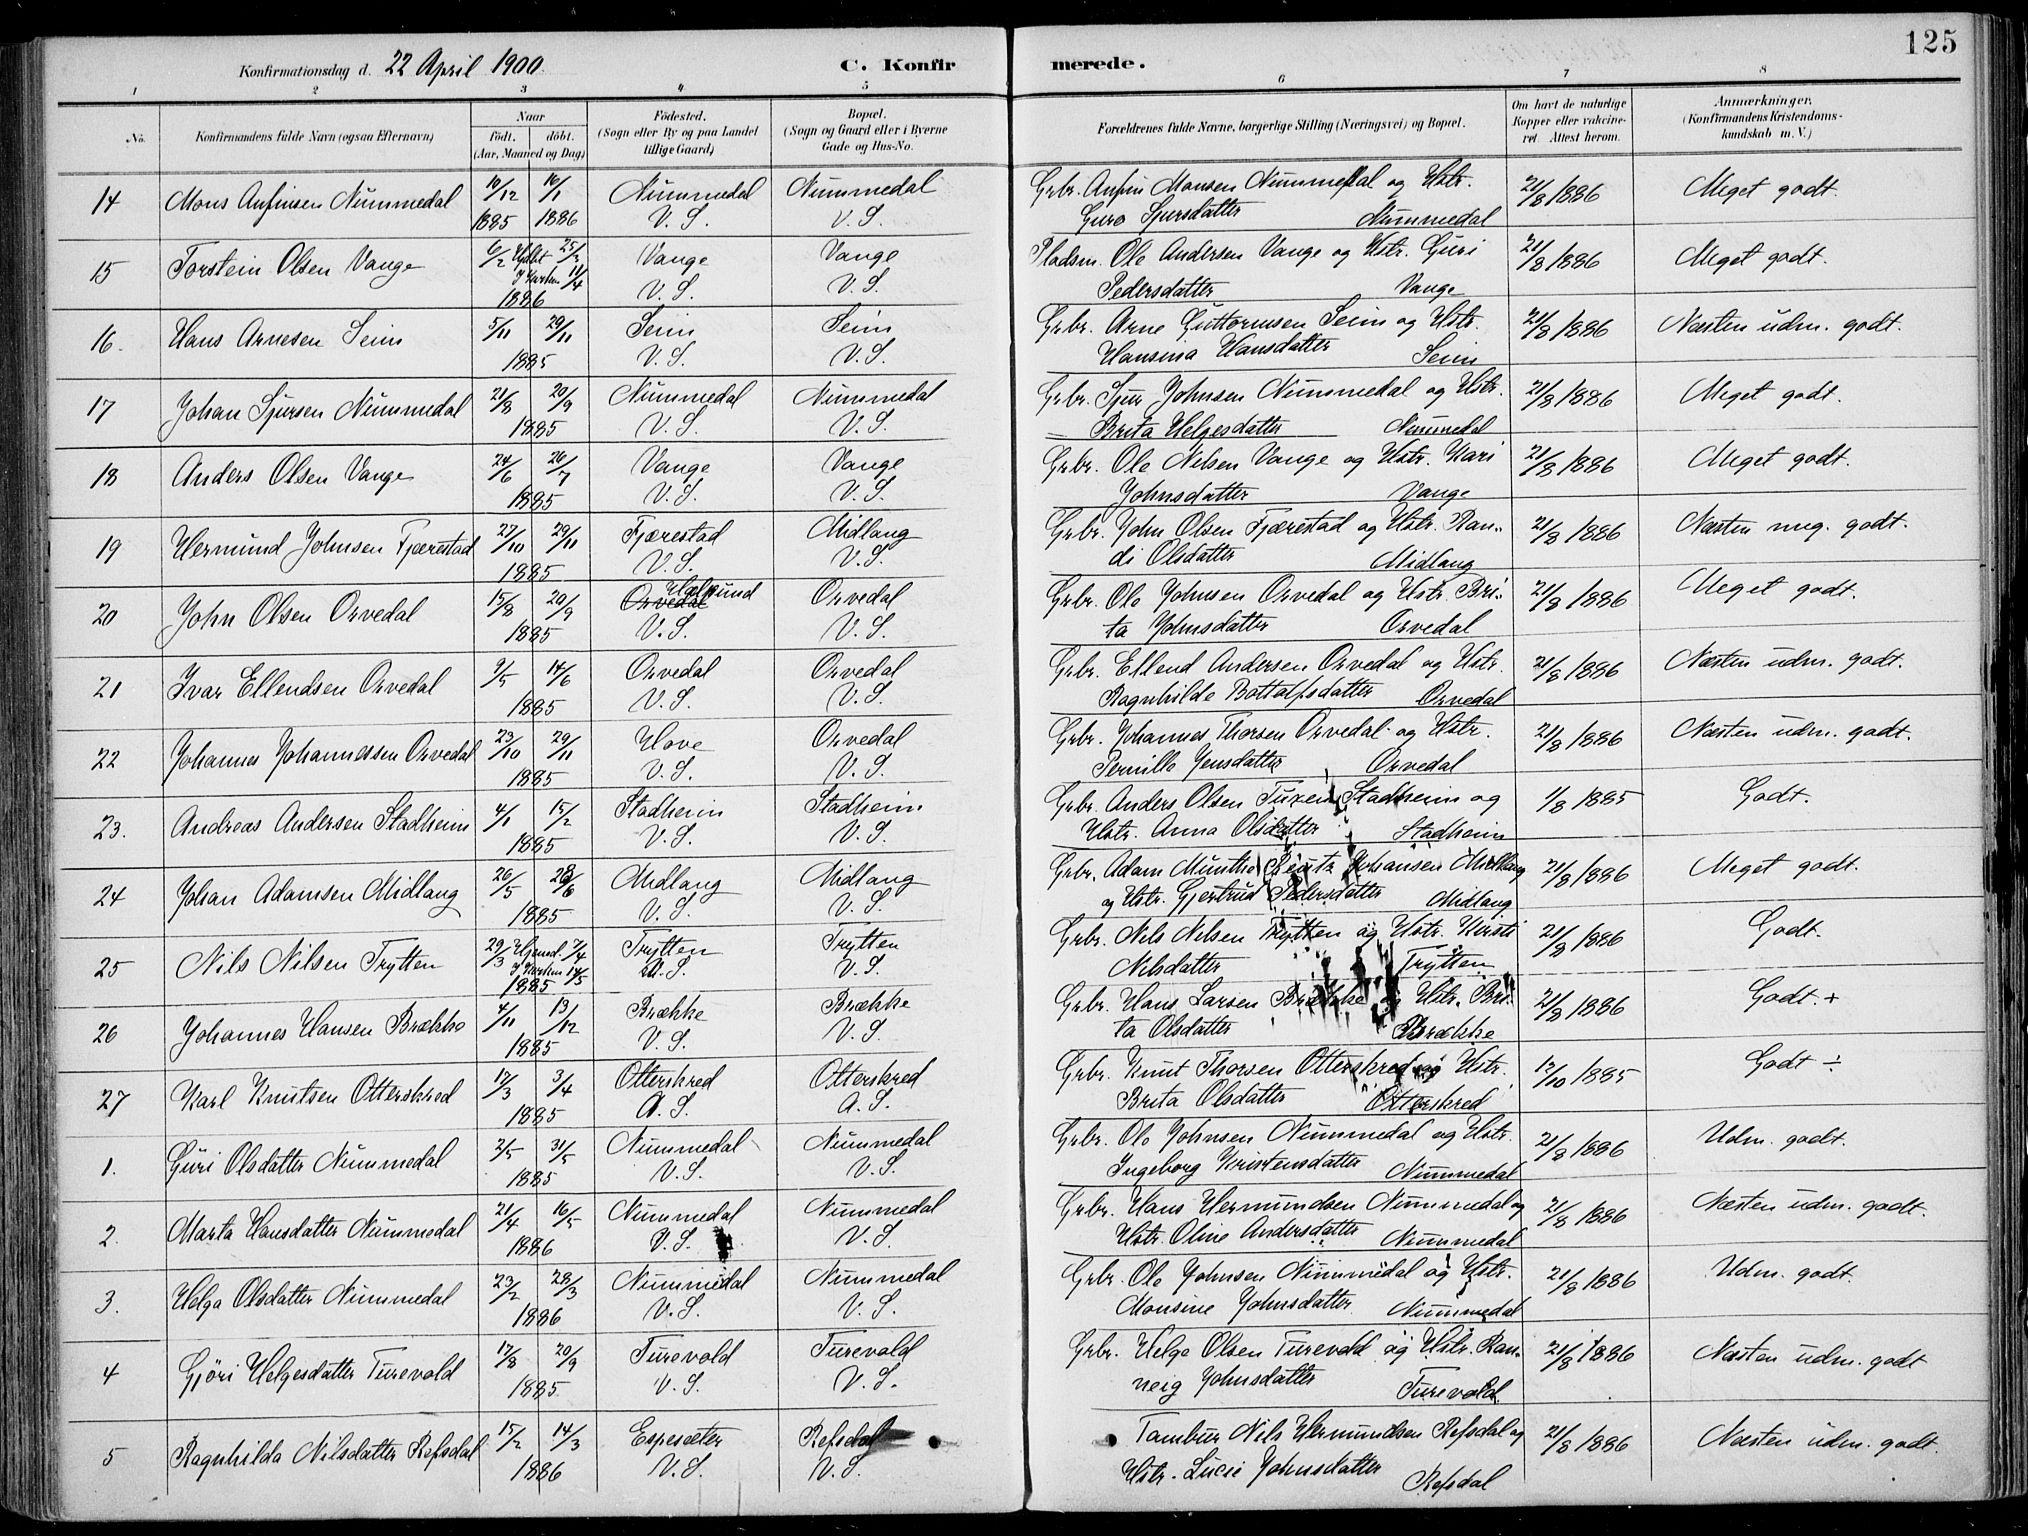 125
Konfirmationsdag d. 22 April 1900.
C. Konfirmerede.
1 2 3 4 5 6 7 8
No. Konfirmandens fulde Navn (ogsaa Efternavn) Naar födt. döbt. (Aar, Maaned og Dag) Födested. (Sogn eller By og paa Landet tillige Gaard) Bopæl. (Sogn og Gaard eller i Byerne Gade og Hus-No. Forældrenes fulde Navne, borgerlige Stilling (Næringsvei) og Bopæl. Om havt de naturlige Kopper eller vakcineret. Attest herom. Anmærkninger. (Konfirmandens Kristendomskundskab m. V.)
14 Mons Anfinsen Nummedal 10/12 16/1 Nummedal Nummedal Grbr. Anfin Monsen Nummedal og Hstr. 21/8 1886 Meget godt.
1885 1886 V. S. V. S. Guro Sjursdatter Nummedal
15 Torstein Olsen Vange 6/2 Hjdbt 25/2 Vange Vange Pladsm. Ole Andersen Vange og Hstr. Guri 21/8 1886 Meget godt.
I Kirken 11/4
1886 V. S. V. S. Pedersdatter Vange
16. Hans Arnesen Seim 5/11 29/11 Seim Seim Grbr. Arne Guttormsen Seim og Hstr. 21/8 1886 Næsten udm. godt.
1885 V. S. V. S. Hansina Hansdatter Seim
17 Johan Sjursen Nummedal 21/8 20/9 Nummedal Nummedal Grbr. Sjur Johnsen Nummedal og Hstr. 21/8 1886 Meget godt.
1885 V. S. V. S. Brita Helgesdatter Nummedal
18 Anders Olsen Vange 24/6 26/7 Vange Vange Grbr. Ole Nelsen Vange og Hstr. Kari 21/8 1886 Meget godt.
1885 V. S. V. S. Johnsdatter Vange
19 Hermund Johnsen Fjærestad 27/10 29/11 Fjærestad Midlang Grbr. John Olsen Fjærestad og Hstr. Ran- 21/8 1886 Næsten mug. godt.
1885 V. S. V. S. di Olsdatter Midlang
20 John Olsen Orvedal 15/8 20/9 Orvedal Orvedal Grbr. Ole Johnsen Orvedal og Hstr. Bri- 21/8 1886 Meget godt.
1885 V. S. V. S. ta Johnsdatter Orvedal
21 Ivar Ellendsen Orvedal 9/5 14/6 Orvedal Orvedal Grbr. Ellend Andersen Orvedal og Hstr. 21/8 1886 Næsten udm. godt.
1885 V. S. V. S. Ragnhilde Bottolfsdatter Orvedal
22 Johannes Johannessen Orvedal 23/10 29/11 Hove Orvedal Grbr. Johannes Thorsen Orvedal og Hstr. 21/8 1886 Næsten udm. godt.
1885 V. S. V. S. Pernille Jensdatter Orvedal
23. Andreas Andersen Stadheim 4/1 15/2 Stadheim Stadheim Grbr. Anders Olsen Tuxen Stadheim og 1/8 1885 Godt.
1885 V. S. V. S. Hstr. Anna Olsdatter Stadheim
24 Johan Adamsen Midlang 26/5 28/6 Midlang Midlang Grbr. Adam Munthe Johansen Midlang 21/8 1886 Meget godt.
1885 V. S. V. S. og Hstr. Gjertrud Pedersdatter Midlang
25 Nils Nilsen Trytten 29/3 Hjemd. 7/4 Trytten Trytten Grbr. Nels Nelsen Trytten og Hstr. Kirsti 21/8 1886 Godt.
I Kirken 14/5
1885 V. S. V. S. Nelsdatter Trytten
26 Johannes Hansen Brække 4/11 13/12 Brække Brække Grbr. Hans Larsen Brække og Hstr. Bri- 21/8 1886 Godt. +
1885 V. S. V. S. ta Olsdatter Brække
27 Karl Knutsen Otterskred 17/3 3/4 Otterskred Otterskred Grbr. Knut Thorsen Otterskred og Hstr. 12/10 1885 Godt ÷
1885 A. S. A. S. Brita Olsdatter Otterskred
1. Guri Olsdatter Nummedal 2/5 31/5 Nummedal Nummedal Grbr. Ole Johnsen Nummedal og Hstr. 21/8 1886 Udm. godt.
1885 V. S. V. S. Ingeborg Kristensdatter Nummedal
2. Marta Hansdatter Nummedal 21/4 16/5 Nummedal Nummedal Grbr. Hans Hermundsen Nummedal og 21/8 1886 Næsten udm. godt.
1886 V. S. V. S. Hstr. Oline Andersdatter Nummedal
3. Helga Olsdatter Nummedal 23/2 28/3 Nummedal Nummedal Grbr. Ole Johnsen Nummedal og Hstr. 21/8 1886 Udm. godt.
1886 V. S. V. S. Monsine Johnsdatter Nummedal
4 Gjöri Helgesdatter Turevold 17/8 20/9 Turevold Turevold Grbr. Helge Olsen Turevold og Hstr. Ran- 21/8 1886 Næsten udm. godt
1885 V. S. V. S. neig Johnsdatter Turevold
5 Ragnhilda Nilsdatter Refsdal 15/2 14/3 Espesæter Refsdal Tambur Nils Hermundsen Refsdal og 21/8 1886 Næsten udm. godt.
1886 V. S. V. S. Hstr. Lucie Johnsdatter Refsdal